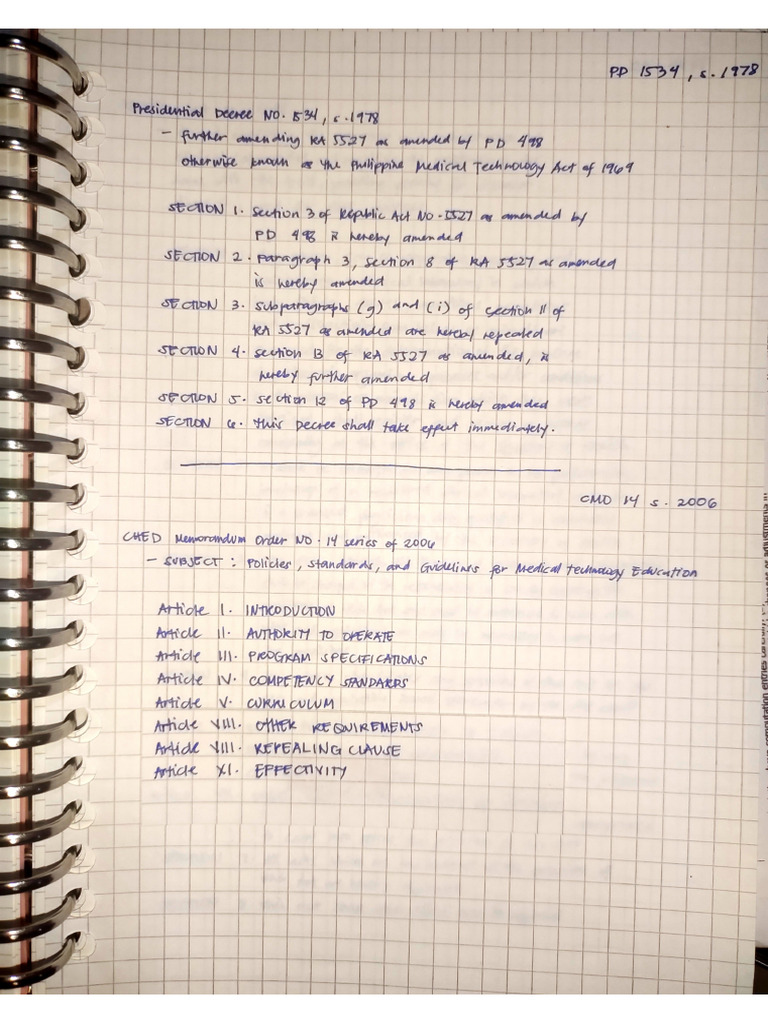 PD 1534, s. 1978
Presidential Decree NO. 534, s. 1978
- further amending RA 5527 as amended by PD 498
otherwise known as the Philippine Medical Technology Act of 1969
SECTION 1. Section 3 of Republic Act No. 5527 as amended by
PD 498 is hereby amended
SECTION 2. Paragraph 3, Section 8 of RA 5527 as amended
is hereby amended
SECTION 3. Subparagraphs (g) and (i) of Section 11 of
RA 5527 as amended are hereby repealed
SECTION 4. Section 13 of RA 5527 as amended, is
hereby further amended
SECTION 5. Section 12 of PD 498 is hereby amended
SECTION 6. This Decree shall take effect immediately.
CMO 14 s. 2006
CHED Memorandum Order NO. 14 series of 2006
- SUBJECT : Policies, Standards, and Guidelines for Medical Technology Education
Article I. INTRODUCTION
Article II. AUTHORITY TO OPERATE
Article III. PROGRAM SPECIFICATIONS
Article IV. COMPETENCY STANDARDS
Article V. CURRICULUM
Article VIII. OTHER REQUIREMENTS
Article VIII. REPEALING CLAUSE
Article XI. EFFECTIVITY